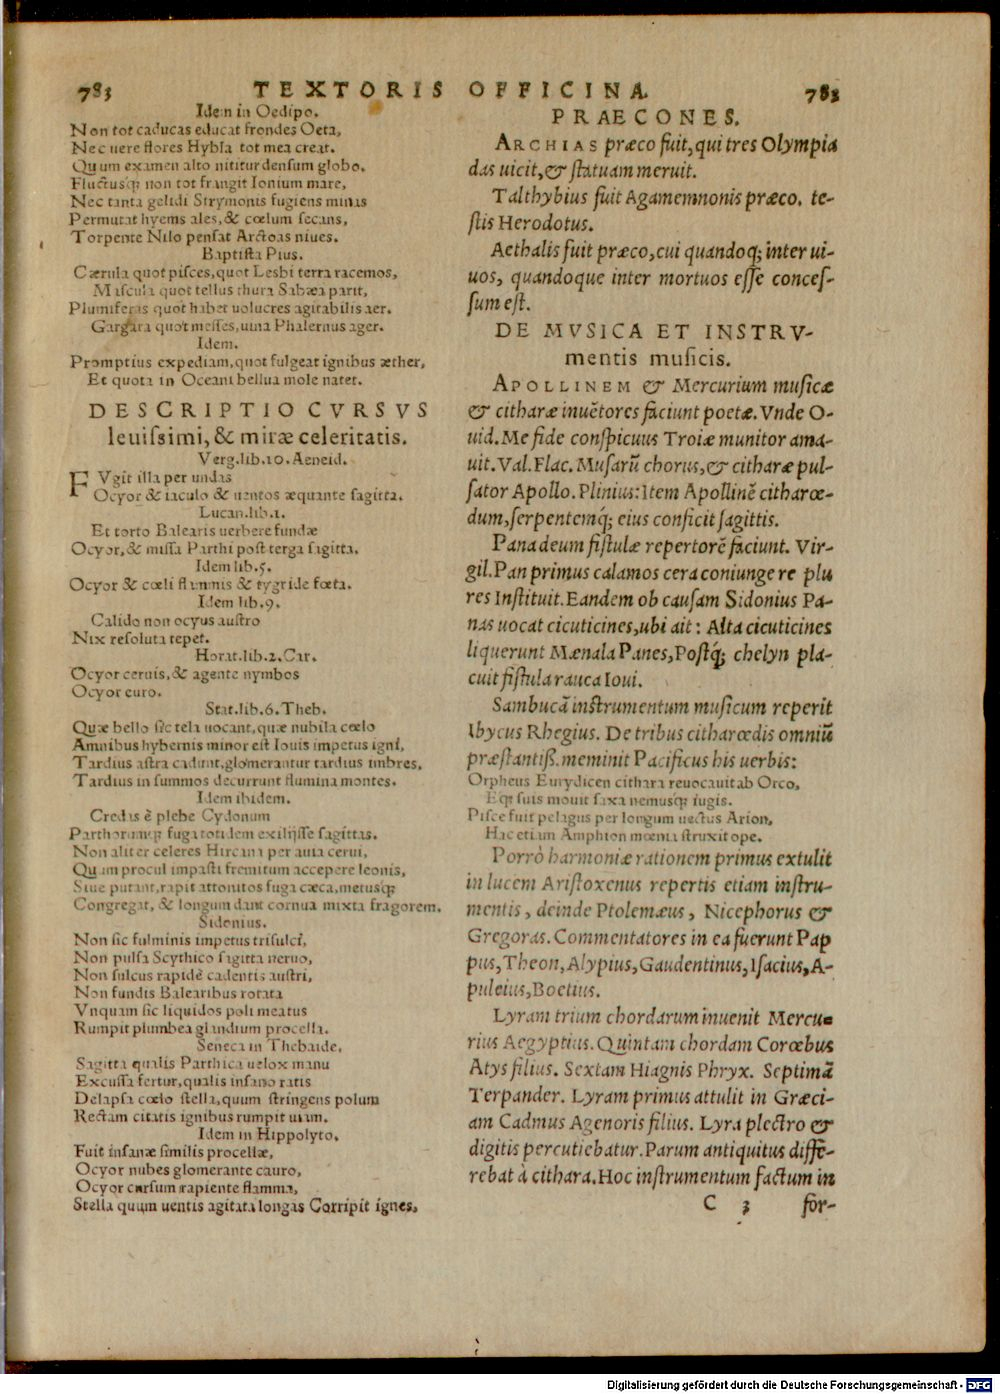 783 TEXTORIS OFFICINA 783
Idem in Oedipo.
Non tot caducas educat frondes Oeta,
Nec uere flores Hybla tot mea creat.
Quum examen alto nititur densum globo.
Fluctusq; non tot frangit Ionium mare,
Nec tanta gelidi Strymonis fugiens minas
Permutat hyems ales, & cœlum secans,
Torpente Nilo pensat Arctoas niues.
Baptista Pius.
Cærula quot pisces, quot Lesbi terra racemos,
Mascula quot tellus thura Sabæa parit,
Plumiferas quot habet uolucres agitabilis aer.
Gargara quot messes, uina Phalernus ager.
Idem.
Promptius expediam, quot fulgeat ignibus æther,
Et quota in Oceani bellua mole natet.
DESCRIPTIO CVRSVS
leuissimi, & miræ celeritatis.
Verg.lib.10. Aeneid.
FVgit illa per undas
Ocyor & iaculo & uentos æquante sagitta.
Lucan.lib.1.
Et torto Balearis uerbere fundæ
Ocyor, & missa Parthi post terga sagitta.
Idem lib.5.
Ocyor & cœli flammis & tygride fœta.
Idem lib.9.
Calido non ocyus austro
Nix resoluta tepet.
Horat.lib.2.Car.
Ocyor ceruis, & agente nymbos
Ocyor euro.
Stat.lib.6.Theb.
Quæ bello sic tela uocant, quæ nubila cœlo
Amnibus hybernis minor est Iouis impetus igni,
Tardius astra cadunt, glomerantur tardius imbres,
Tardius in summos decurrunt flumina montes.
Idem ibidem.
Credas è plebe Cydonum
Parthorumq; fuga totidem exilijsse sagittas.
Non aliter celeres Hircana per auia cerui,
Quum procul impasti fremitum accepere leonis,
Siue putant, rapit attonitos fuga cæca, metusq;
Congregat, & longum dant cornua mixta fragorem.
Sidonius.
Non sic fulminis impetus trisulci,
Non pulsa Scythico sagitta neruo,
Non sulcus rapidè cadentis austri,
Non fundis Balearibus rotata
Vnquam sic liquidos poli meatus
Rumpit plumbea glandium procella.
Seneca in Thebaide.
Sagitta qualis Parthica uelox manu
Excussa fertur, qualis insano ratis
Delapsa cœlo stella, quum stringens polum
Rectam citatis ignibus rumpit uiam.
Idem in Hippolyto.
Fuit insanæ similis procellæ,
Ocyor nubes glomerante cauro,
Ocyor cursum rapiente flamma,
Stella quum uentis agitata longas Corripit ignes.
PRAECONES.
ARCHIAS præco fuit, qui tres Olympia
das uicit, & statuam meruit.
Talthybius fuit Agamemnonis præco. te-
stis Herodotus.
Aethalis fuit præco, cui quandoq; inter ui-
uos, quandoque inter mortuos esse conces-
sum est.
DE MVSICA ET INSTRV-
mentis musicis.
APOLLINEM & Mercurium musicæ
& citharæ inuẽtores faciunt poetæ. Vnde O-
uid. Me fide conspicuus Troiæ munitor ama-
uit. Val. Flac. Musarũ chorus, & citharæ pul-
sator Apollo. Plinius: Item Apollinẽ citharœ-
dum, serpentemq́; eius conficit sagittis.
Pana deum fistulæ repertorẽ faciunt. Vir-
gil. Pan primus calamos cera coniungere plu
res Instituit. Eandem ob causam Sidonius Pa-
nas uocat cicuticines, ubi ait: Alta cicuticines
liquerunt Mænala Panes, Postq́; chelyn pla-
cuit fistula rauca Ioui.
Sambucã instrumentum musicum reperit
Ibycus Rhegius. De tribus citharœdis omniũ
præstantiß. meminit Pacificus his uerbis:
Orpheus Eurydicen cithara reuocauit ab Orco,
Eq; suis mouit saxa nemusq; iugis.
Pisce fuit pelagus per longum uectus Arion,
Hac etiam Amphion mœnia struxit ope.
Porrò harmoniæ rationem primus extulit
in lucem Aristoxenus repertis etiam instru-
mentis, deinde Ptolemæus, Nicephorus &
Gregoras. Commentatores in ea fuerunt Pap
pus, Theon, Alypius, Gaudentinus, Isacius, A-
puleius, Boetius.
Lyram trium chordarum inuenit Mercu-
rius Aegyptius. Quintam chordam Corœbus
Atys filius. Sextam Hiagnis Phryx. Septimã
Terpander. Lyram primus attulit in Græci-
am Cadmus Agenoris filius. Lyra plectro &
digitis percutiebatur. Parum antiquitus diffe-
rebat à cithara. Hoc instrumentum factum in
C 3 for-
Digitalisierung gefördert durch die Deutsche Forschungsgemeinschaft - DFG